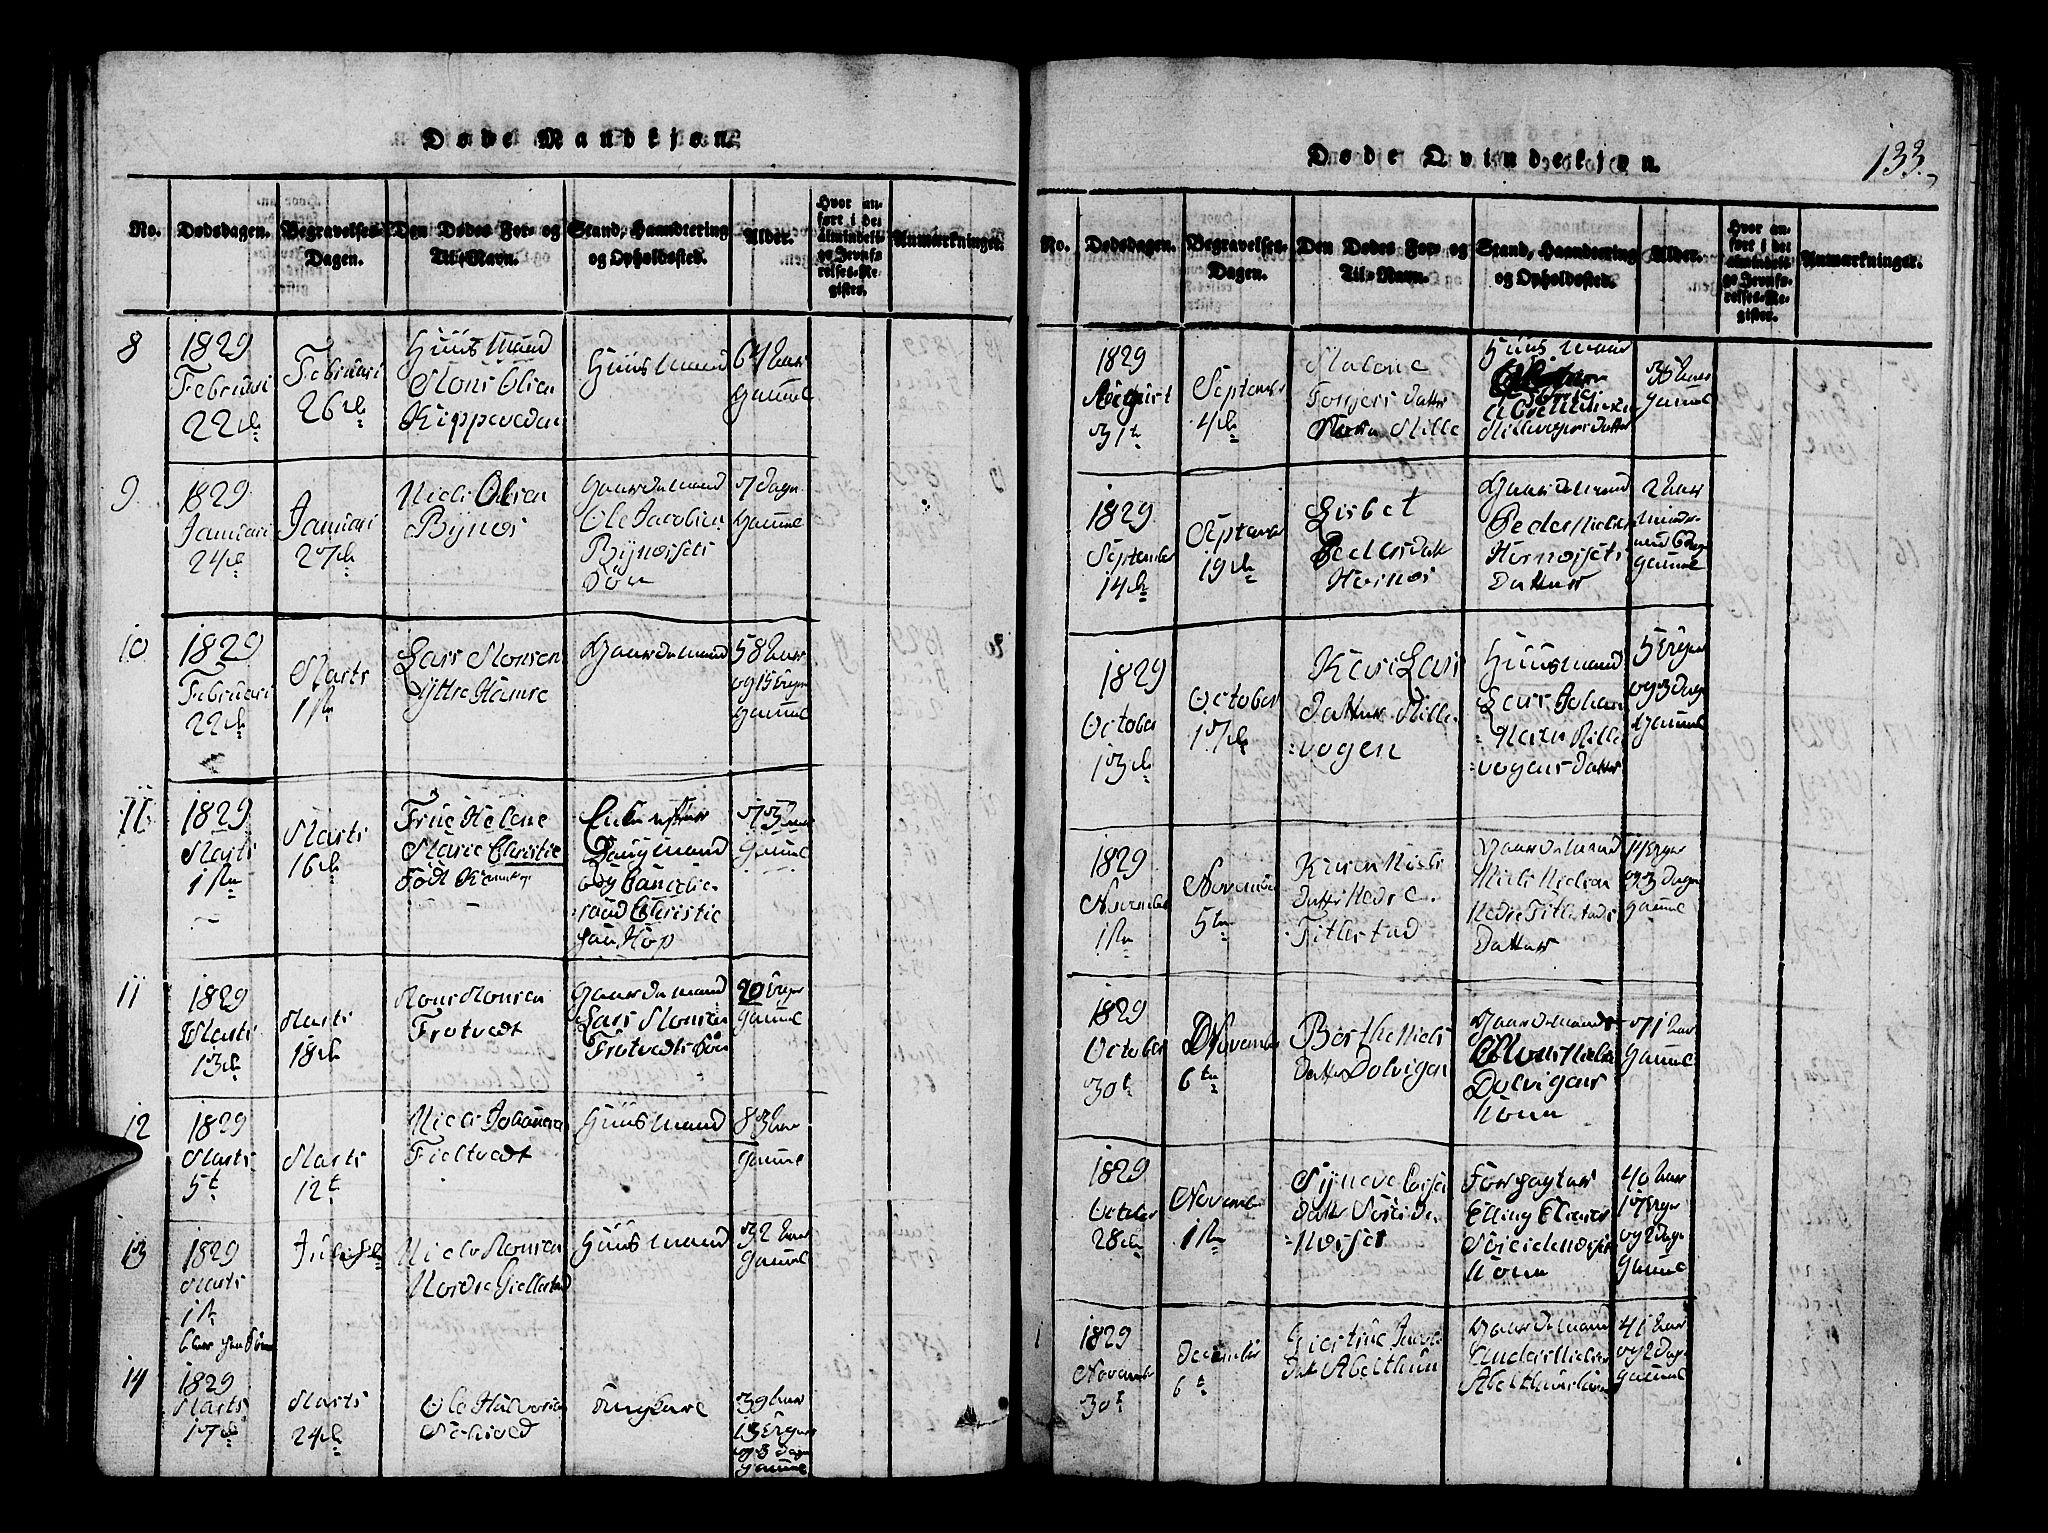 Døde Mandkjøn.
No.
Dødsdagen.
Begravelses-
Dagen.
Den Dødes For- og
Til-Navn.
Stand, Haandtering
og Opholdssted.
Alder.
Hvor an-
ført i det
almindeli-
ge Jevnfø-
relses-Re-
gister.
Anmærkninger.
8
1829
Februari
22de
Februari
26de
Huus Mand
Mons Olsen
Kippersdal
Huus Mand
Gammel
9.
1829
Januari
24de
Januari
27de
Niels Olsen
Bynøs
Gaardemand
Ole Jacobsen
Bynøssets
Søn
7 Dage
Gammel
10
1829
Februari
22de
Marts
1ste
Lars Monsen
Yttre Hamre
Gaardemand
58 Aar
og 15 Uger
Gammel
11
1829
Marts
1ste
Marts
16de
Frue Helene
Marie Christie
Født
Enke efter
og Cancelie
raad Christie
paa Hop
73 Aar
Gammel
11
1829
Marts
13de
Marts
18de
Mons Monsen
Frotvedt
Gaardemand
Lars Monsen
Frotvedts Søn
20 Uger
Gammel
12
1829
Marts
5te
Marts
12te
Niels Johannesen
Fieltvedt
Huus Mand
83 Aar
Gammel
13
1829
Marts
1ste
Niels Monsen
Nordre Giellestad
Huus Mand
32 Aar
Gammel
14
1829
Marts
17de
Marts
24de
Ole Halvorsen
Ungkarl
39 Aar
13 Uger
og 3 Dage
Gammel
Døde Qvindekjøn.
133.
No.
Dødsdagen.
Begravelses-
Dagen.
Den Dødes For- og
Til-Navn.
Stand, Haandtering
og Opholdssted.
Alder.
Hvor an-
ført i det
almindeli-
ge Jevnfø-
relses-Re-
gister.
Anmærkninger.
1829
August
31te
September
4de
Malene
Torgers Datter
Huus Mand
Gammel
1829
September
14de
September
19de
Lisbet
Peders Datt
Hornøs
Gaardemand
Peder Nielsen
Hornøssets
Datter
2 Aar
Mindre
end 6 Dage
Gammel
1829
October
13de
October
17de
Kari Lars
Datter Mille
-vogen
Huusmand
Lars Johan
Mille
-vogens Datter
5 Uger
og 3 Dage
Gammel
1829
November
1ste
November
5te
Karen Niels
Datter Nedre
Titlestad
Gaardemand
Niels Nielsen
Nedre Titlestads
Datter
11 Uger
og 3 Dage
Gammel
1829
October
30te
November
6te
Berthe Niels
Datter Dolvigen
Gaardemand
Mons Nielsen
Dolvigens
Kone
71 Aar
Gammel
1829
October
28de
November
1ste
Synneve
Datter Søreide
Forpagter
Elling
Kone
40 Aar
17 Uger
og 2 Dage
Gammel
1
1829
November
30te
December
6te
Giertrue
Dat Abelthun
Gaardemand
Anders Nielsen
41 Aar
og 2 Dage
Gammel